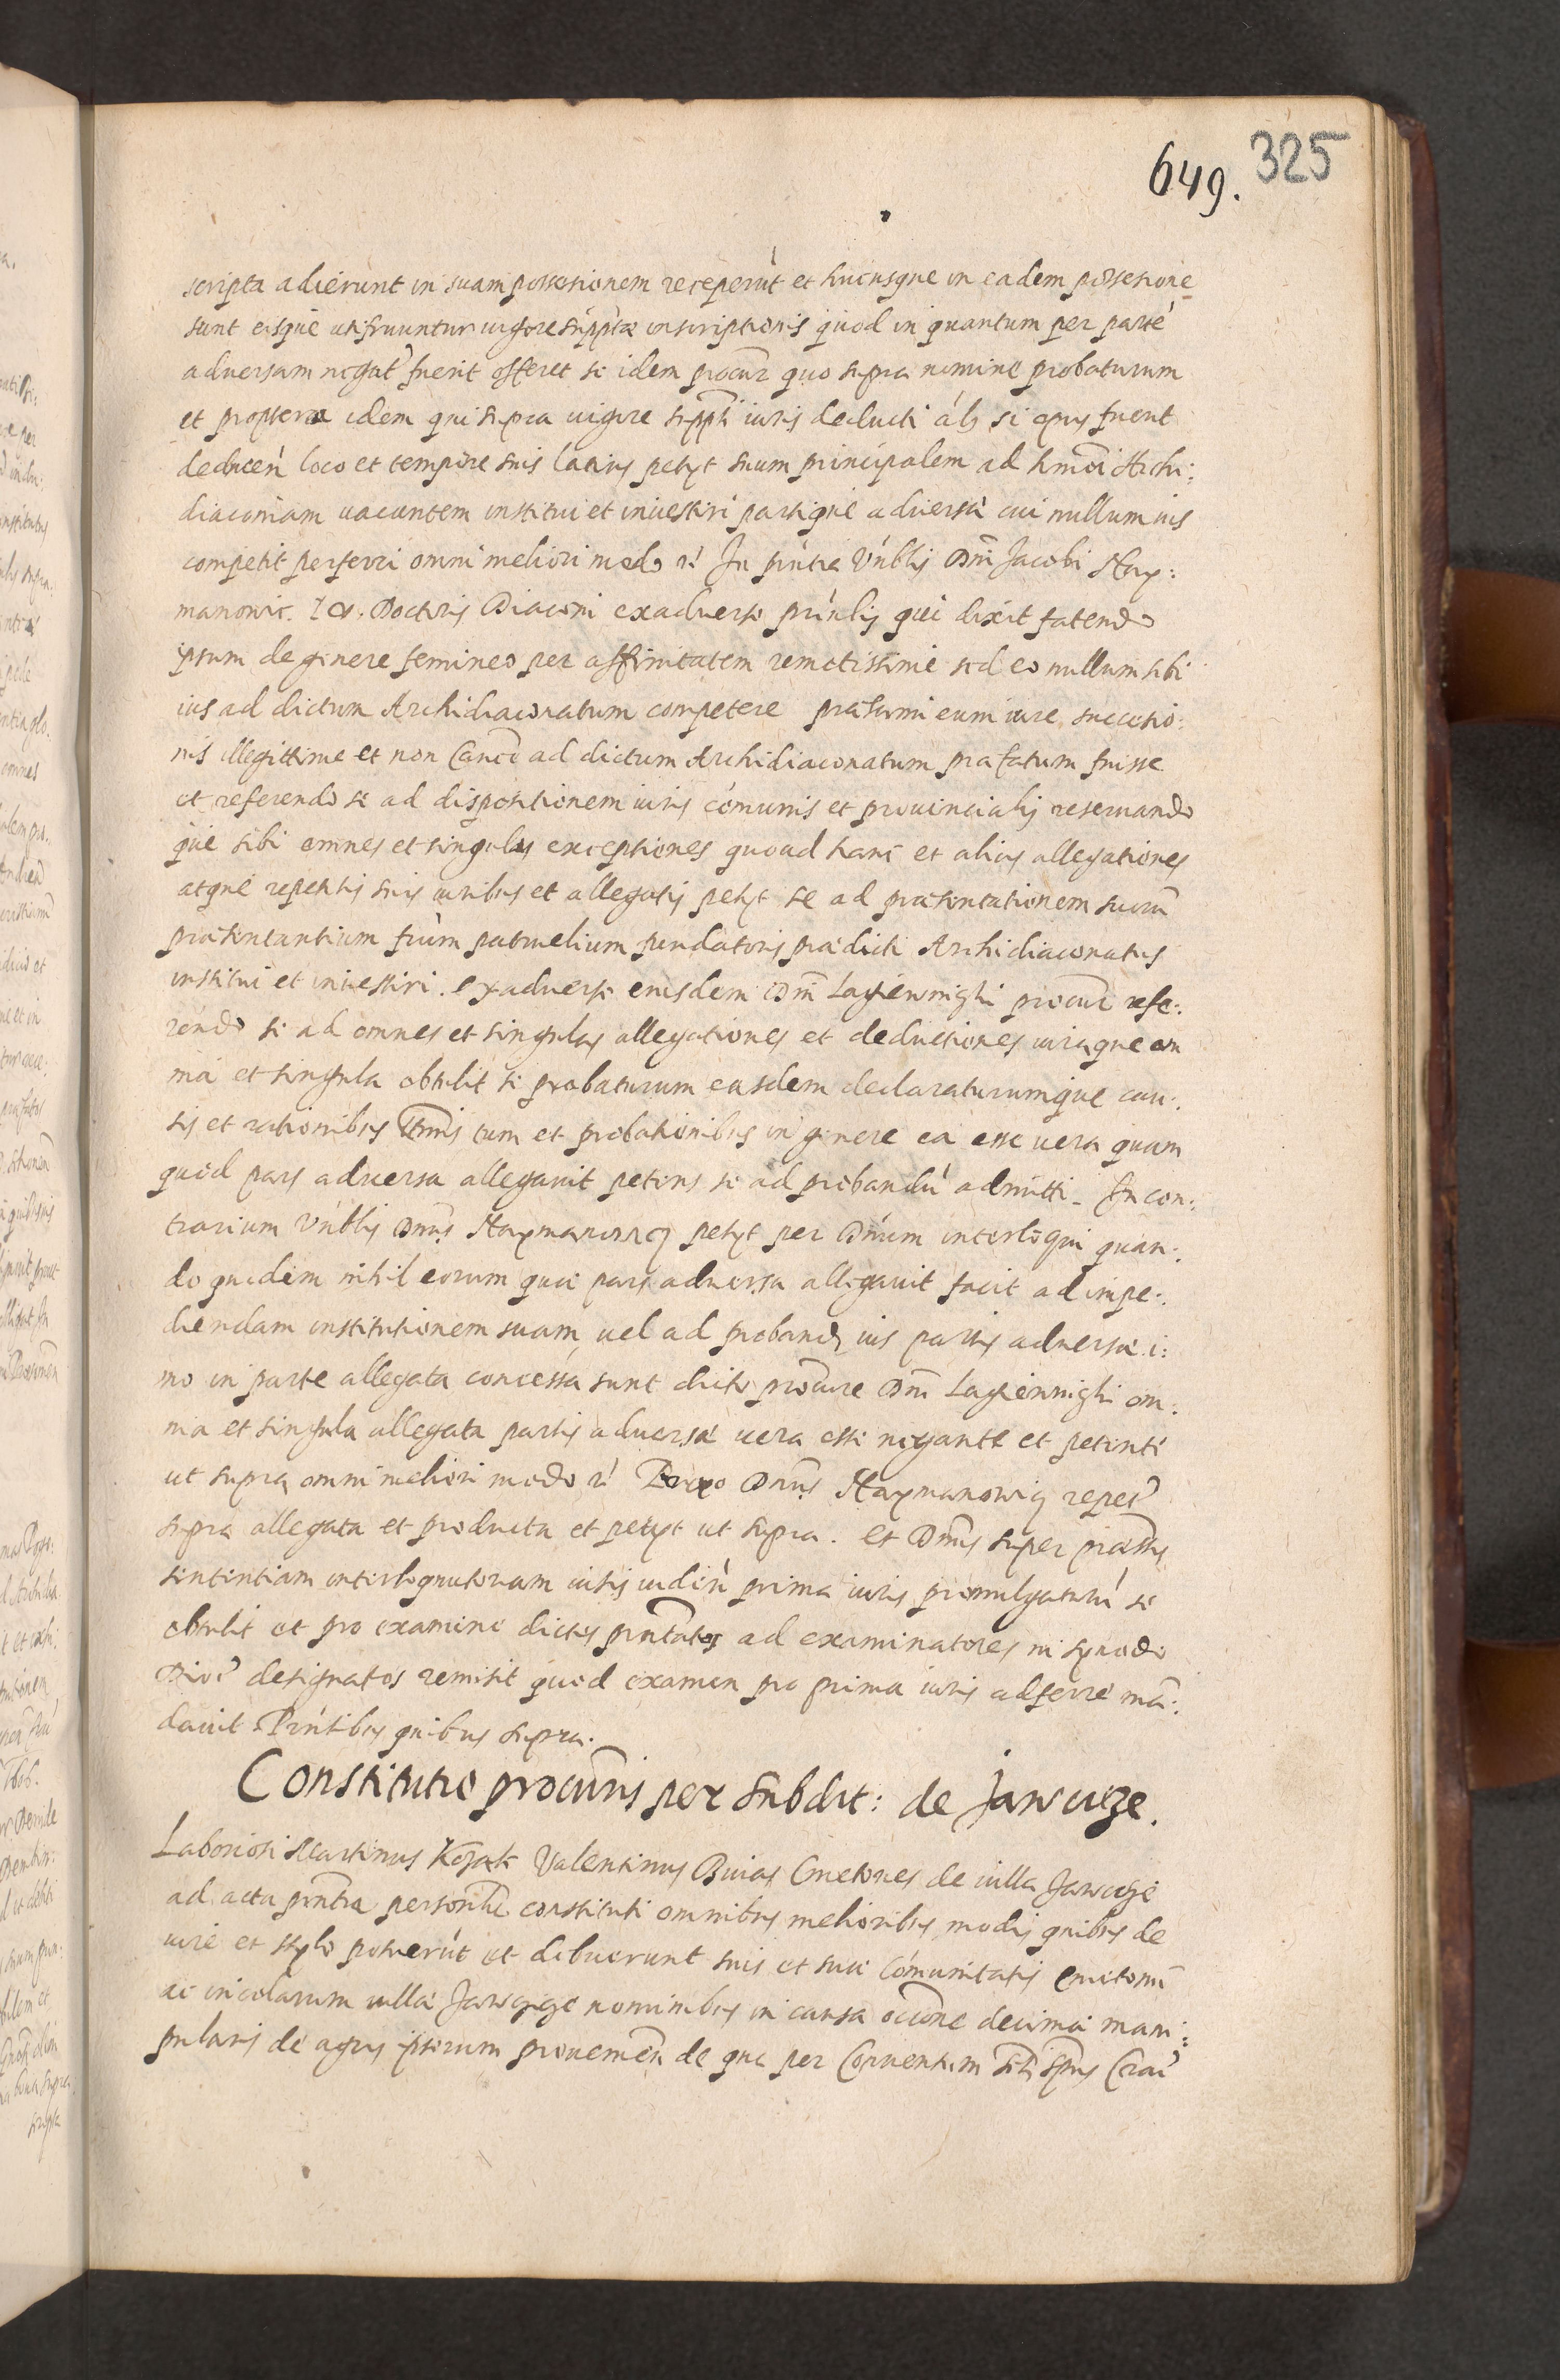 649. 325
scripta adierunt in suam possessionem receperūt et hucusque in eadem possessione
sunt eisque utifruuntur vigore supptæ inscriptionis quod in quantum per partē
adversam negat' fuerit offeret se idem procur quo supra nomine probaturum
et propterea idem qui supra vigore suppti iuris deducti al's si opus fuerit
deducen loco et tempore suis latius petyt suum principalem ad hmōi Archi:
diaconiam vacantem institui et investiri partique adversæ cui nullum ius
competit perferri omni meliori modo rc Jn pntia Vnblis Dni Jacobi Hay:
manowic. Doctoris Diaconi ex adverso pñtis qui dixit fatendo
ipsum de genere femineo per affinitatem remotissime sed eo nullum sibi
ius ad dictum Archidiaconatum competere præsumi eum iure successio:
nis illegittime et non Canc̄e ad dictum Archidiaconatum præfatum fuisse
et referendo se ad dispositionem iuris cōmunis et provincialis reservando
que sibi omnes et singulas exceptiones quoad hanc et alias allegationes
atque repetitis suis iuribus et allegatis petyt se ad præsentationem suorū
præsentantium patruelium fundatoris prædicti Archidiaconatus
institui et investiri. ex adverso eiusdem Dni procur refe:
rendo se ad omnes et singulas allegationes et deductiones iuraque om
nia et singula obtulit se probaturum easdem declaraturumque cau:
sis et rationibus tum et probationibus in genere ea esse vera quam
quod pars adversa allegavit petens se ad probandū admitti_ Jn con:
trarium Vnblis Dnus Haymanowicz petyt per Dnum interloqui quan:
do quidem nihil eorum quæ pars adversa allegavit facit ad impe:
diendam institutionem suam vel ad proband ius partis adversæ i:
mo in parte allegata concessa sunt dicto procure Dni om:
nia et singula allegata partis adversæ vera esse negante et petente
ut supra omni meliori modo rc Porro Dnus Haymanowicz repet'
supra allegata et producta et petyt ut supra. et Dnus super præmissis
sententiam interlocutoriam visis viden prima iuris promulgaturū se
obtulit et pro examine dictos pntatos ad examinatores in synodo
Dioc' designatos remisit quod examen pro prima iuris adferre mā:
davit. Pntibus quibus supra.
Constitutio procuris per subdit: de Jawczyce.
Laboriosi Martinus Kozak Valentinus Buias Cmetones de villa Jawczyce
ad acta pntia personlr constituti omnibus melioribus modis quibus de
iure et stylo potuerūt et debuerunt suis et suæ Cōmunitatis cmetonū
ac incolarum villæ Jawczyce nominibus in causa occōne decimæ mani:
pularis de agris ipsorum provenien de qua per Conventum Sti Spus Crac'